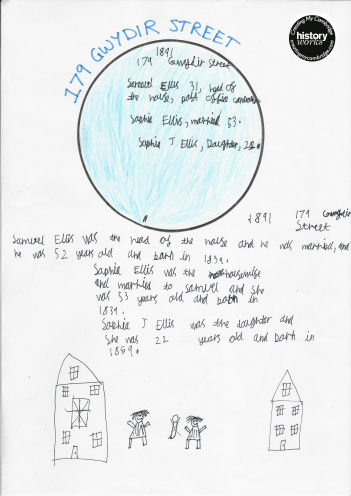 179 GWYDIR STREET
Creating My Cambridge
history works
creatingmycambridge.com
1891
179 Gwydir Street
Samuel Ellis 31, head of
the house, post office
Sophia Ellis, married 53.
Sophia J Ellis, Daughter, 22.
1891 179 Gwydir
Street
Samuel Ellis was the head of the house and he was married, and
he was 52 years old and born in 1839.
Sophia Ellis was the housewise
and married to samuel and she
was 53 years old and born in
1839.
Sophia J Ellis was the daughter and
she was 22 years old and born in
1869.